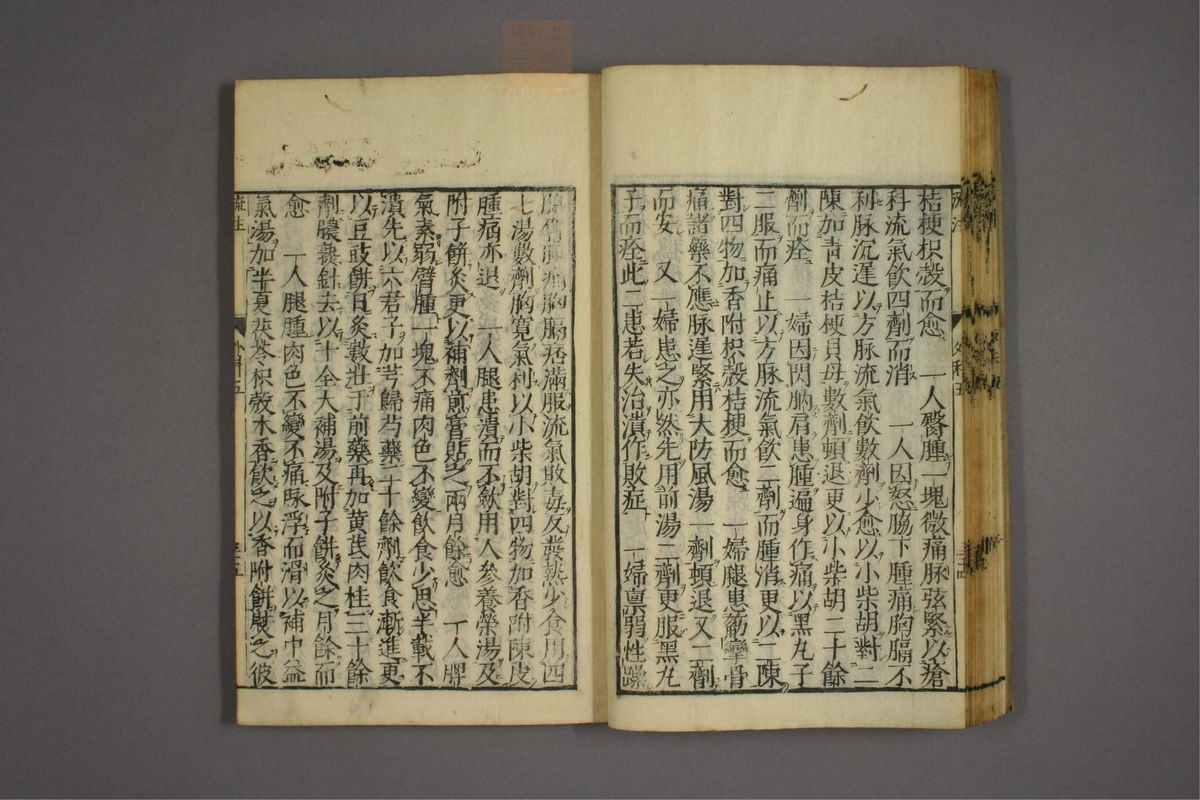 桔梗枳殼而愈　一人臀腫一塊微痛脉弦緊以瘡
科流氣飲四劑而消　一人因怒脇下腫痛胸膈不
利脉沉遲以方脉流氣飲數劑少愈以小柴胡對二
陳加青皮桔梗貝母數劑頓退更以小柴胡二十餘
劑而痊　一婦因閃肭肩患腫遍身作痛以黑丸子
二服而痛止以方脉流氣飲二劑而腫消更以二陳
對四物加香附枳殼桔梗而愈　一婦腿患筋攣骨
痛諸藥不應脉遲緊用大防風湯一劑頓退又二劑
而安　又一婦患之亦然先用前湯二劑更服黑丸
子而痊此二患若失治潰作敗症　一婦禀弱性躁
痛胸膈痞滿服流氣敗毒反發熱少食用四
七湯數劑胸寬氣利以小柴胡對四物加香附陳皮
腫痛亦退　一人腿患潰而不歛用人參養榮湯及
附子餅灸更以補劑煎膏貼之兩月餘愈　一人脾
氣素弱臂腫一塊不痛肉色不變飲食少思半載不
潰先以六君子加芎歸芍藥二十餘劑飲食漸進更
以豆豉餅日灸數壯于前藥再加黄芪肉桂三十餘
劑膿熟針去以十全大補湯及附子餅灸之月餘而
愈　一人腿腫肉色不變不痛脉浮而滑以補中益
氣湯加半夏茯苓枳殼木香飲之以香附餅熨之彼
外科五